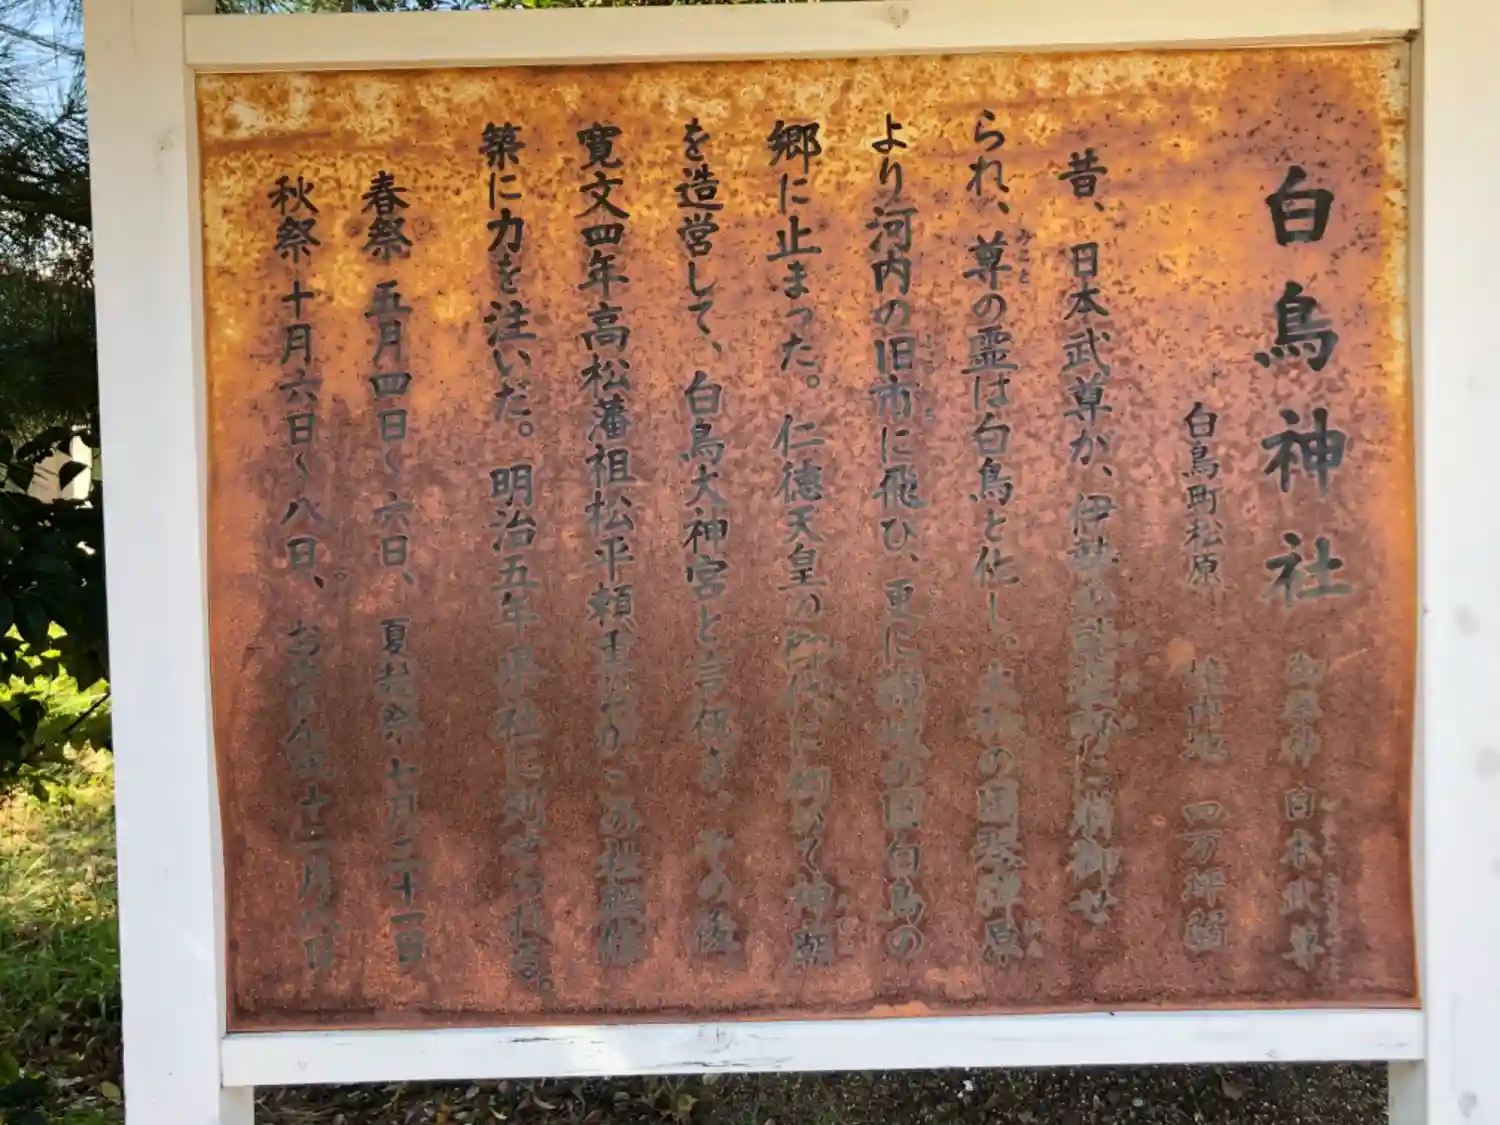 白鳥神社 御祭神 日本武尊
白鳥町松原 境内地 四万坪弱
昔、日本武尊が、伊勢の能褒野に崩御せ
られ、尊の霊は白鳥と化し、大和の国琴弾原
より河内の旧市に飛び、更に讃岐の国白鳥の
郷に止まった。仁徳天皇の御代に初めて神廟
を造営して、白鳥大神宮と言 その後
寛文四年高松藩祖松平頼重公がこの社殿修
築に力を注いだ。明治五年県社に列せられる。
春祭 五月四日〜六日、夏越祭 七月三十一日
秋祭 十月六日〜八日、 十二月 日